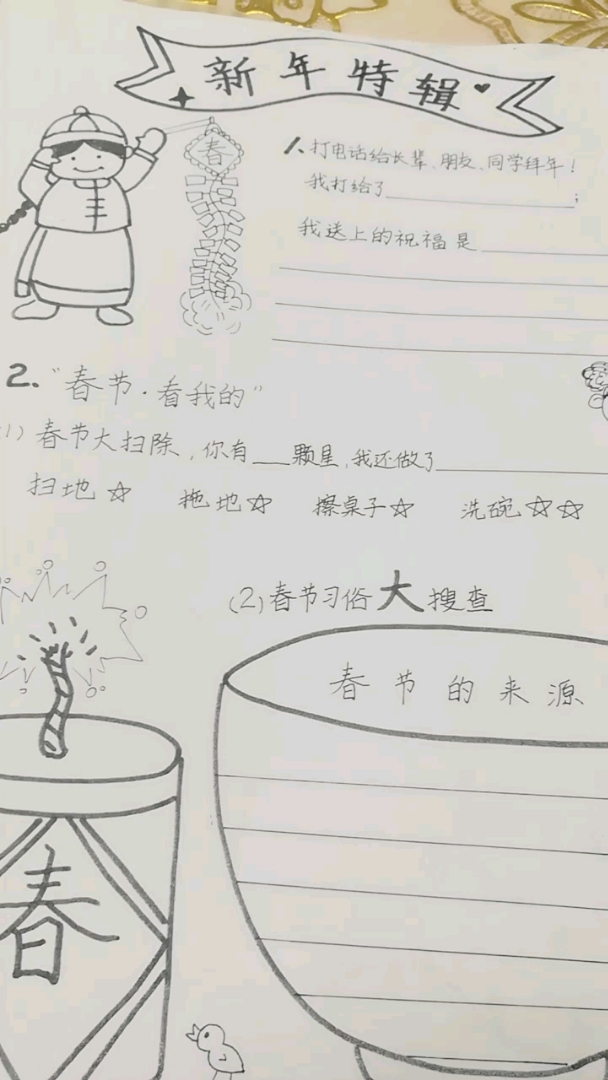 新年特辑
春
1.打电话给长辈、朋友、同学拜年！
我打给了____;
我送上的祝福是____
2.“春节·看我的”
(1)春节大扫除，你有__颗星，我还做了____
扫地☆ 拖地☆ 擦桌子☆ 洗碗☆☆
(2)春节习俗大搜查
春节的来源
春